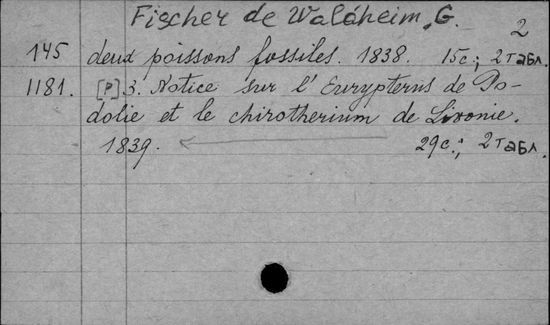 Fischer de Waldheim, G.
2
145 deux poissons fossiles. 1838. 15c.; 2 табл.
1181. [P]. 3. Notice sur l' Eurypterus de Po-
dolie et le chirotherium de Livonie.
1839. 29c.; 2 табл.